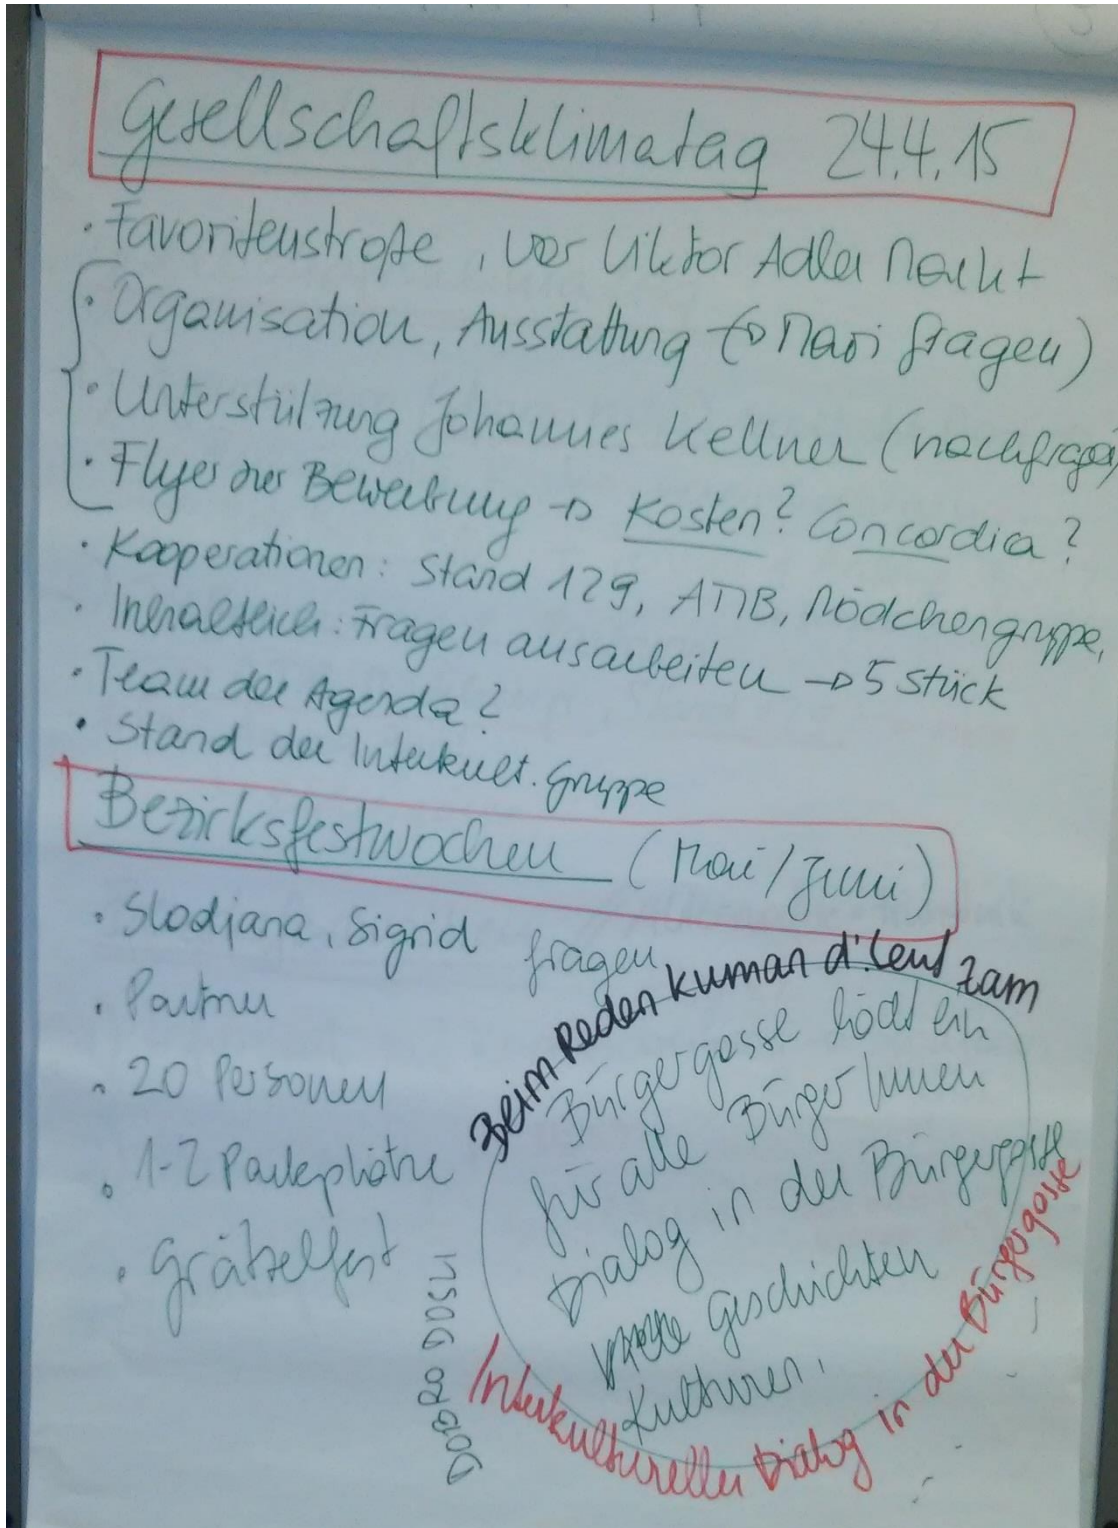 Gesellschaftsklimatag 24.4.15
· Favoritenstraße, vor Viktor Adler Markt
· Organisation, Ausstattung (→ Mari fragen)
· Unterstützung Johannes Kellner (nachfragen)
· Flyer zur Bewerbung → Kosten? Concordia?
· Kooperationen: Stand 129, ATIB, Mädchengruppe,
· Inhaltlich: Fragen ausarbeiten → 5 Stück
· Team der Agenda?
· Stand der Interkult. Gruppe
Bezirksfestwochen (Mai/Juni)
· Slodjana, Sigrid fragen
· Partner
· 20 Personen
· 1-2 Parkplätze
· Grätzelfest
Beim Reden kuman d'Leut zam
Bürgergasse lädt ein
für alle BürgerInnen
Dialog in der Bürgergasse
Geschichten
Kulturen.
Interkultureller Dialog in der Bürgergasse
DOBRO DOSLI